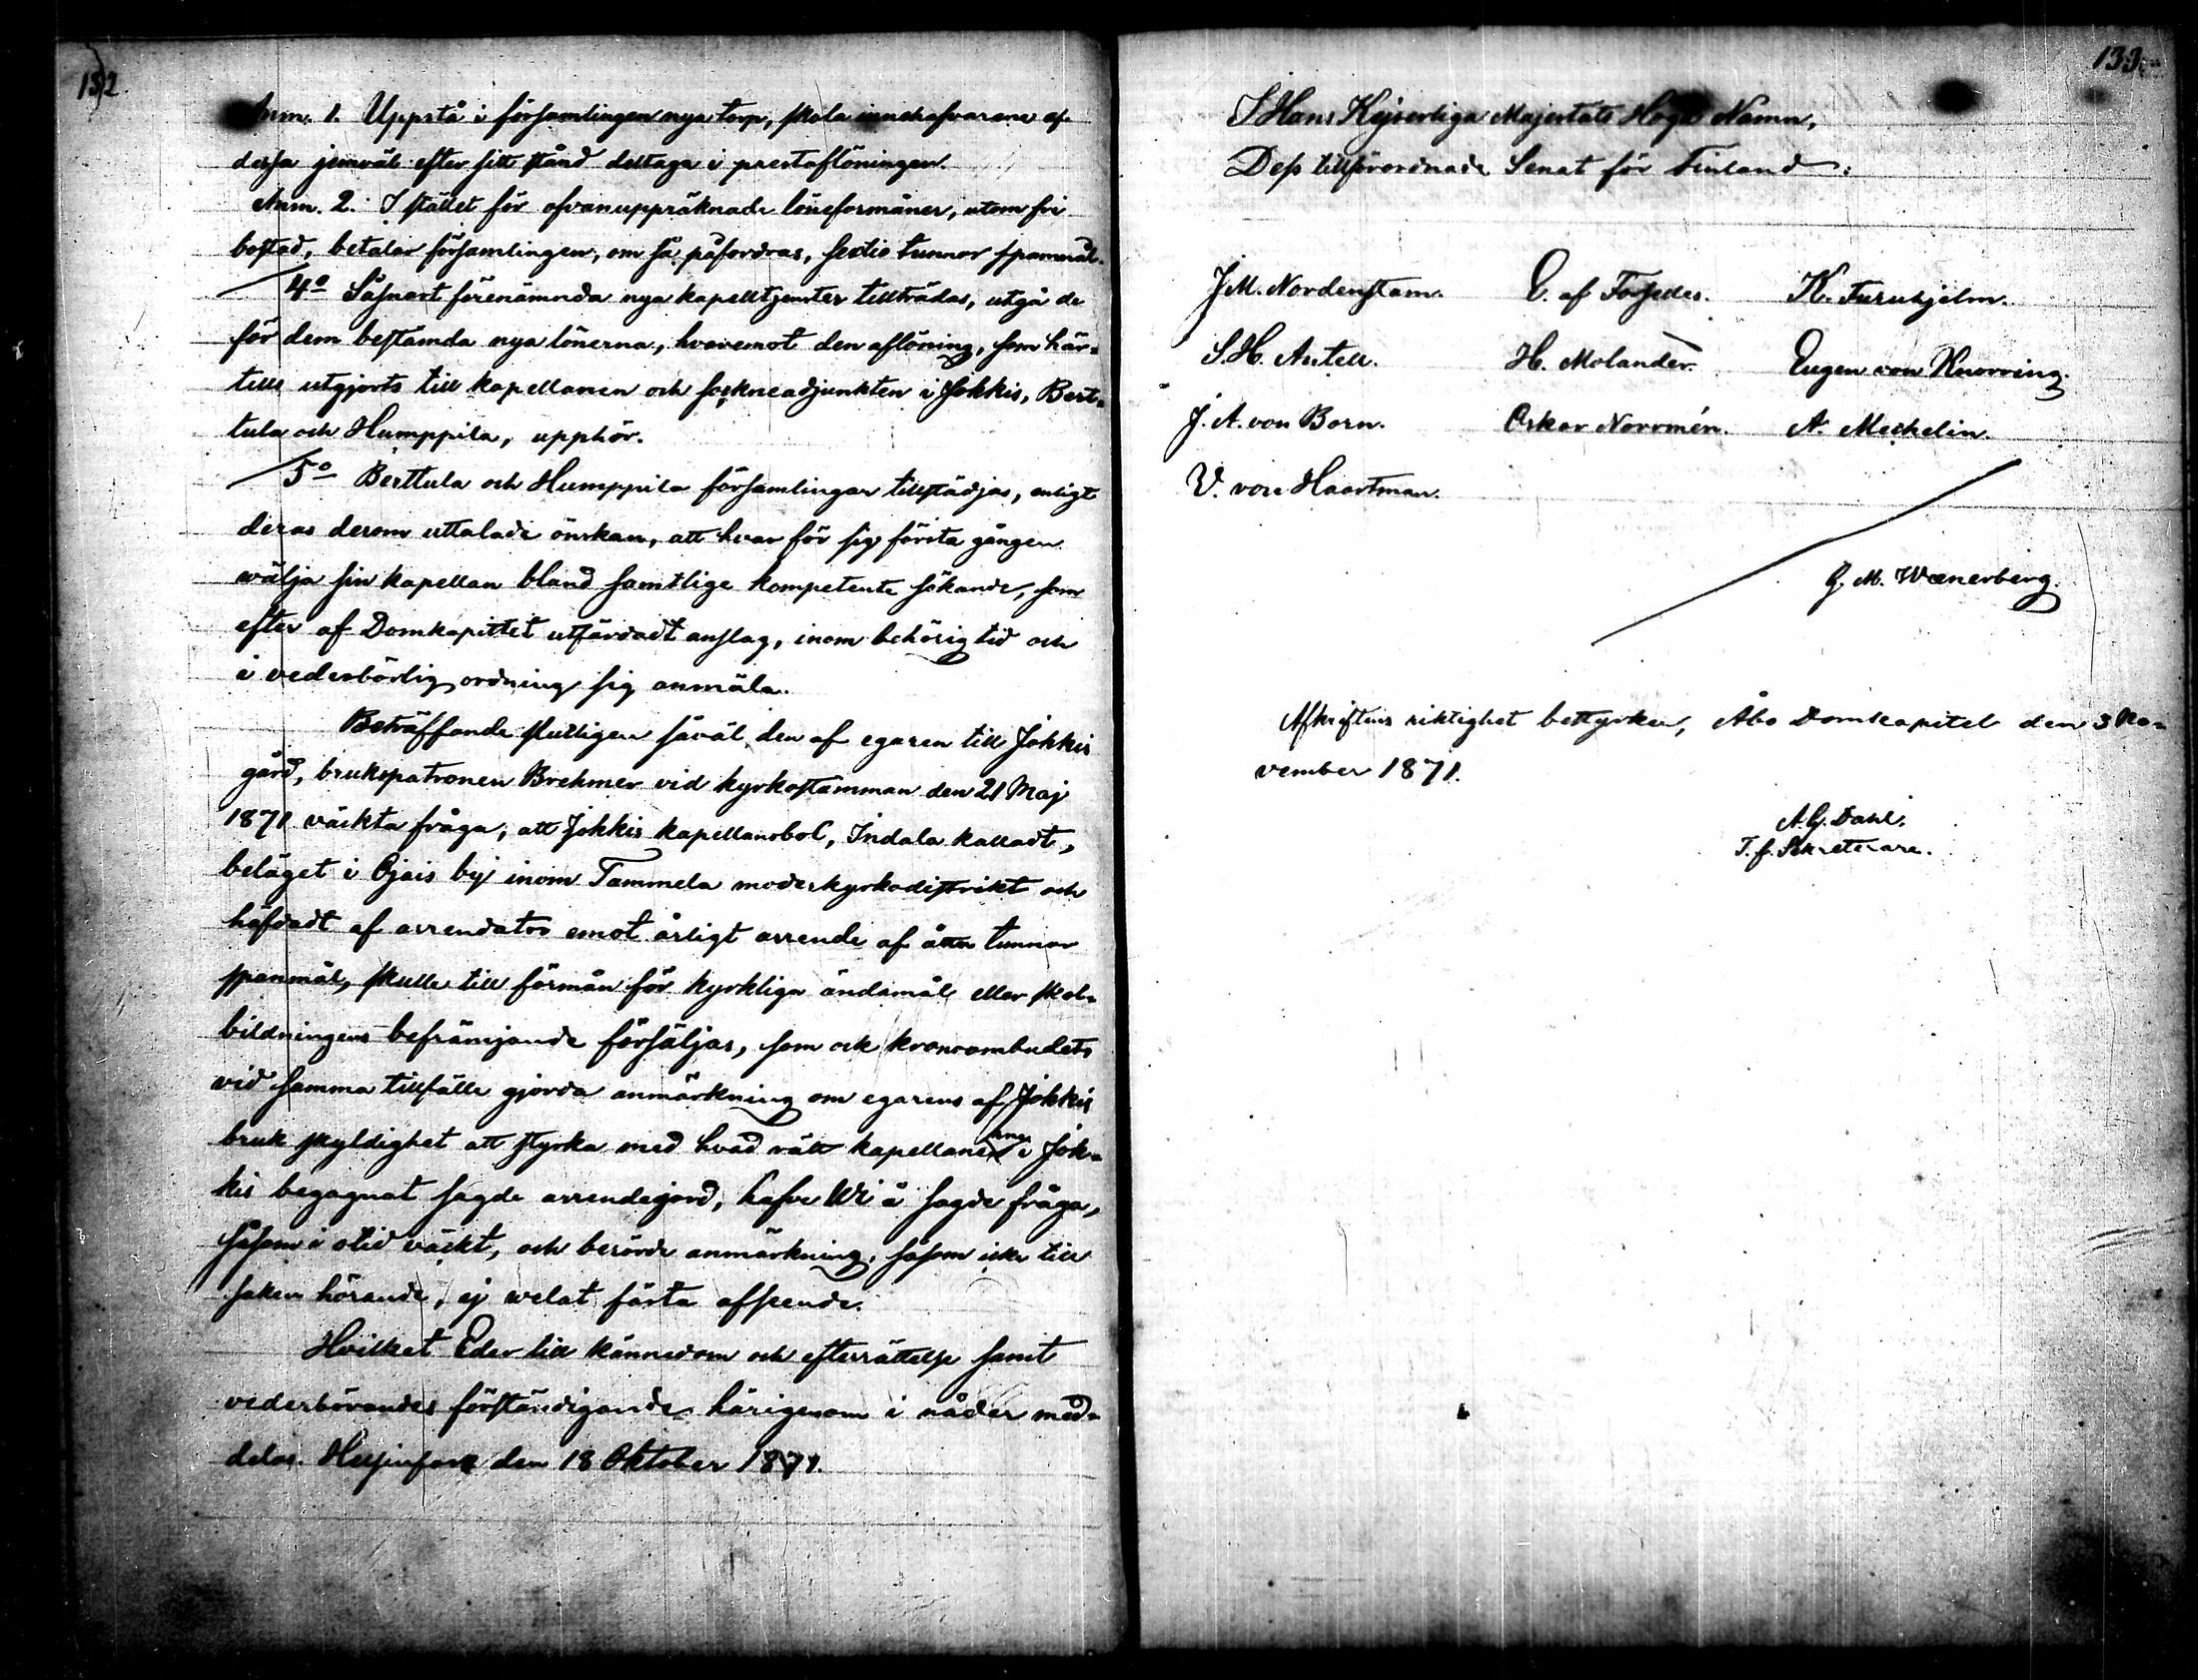 132.
Anm. 1. Uppstå i församlingen nya torp, skola innehafvarene af
dessa jemväl efter sitt stånd deltaga i prestaflöningen.
Anm. 2. I stället för ofvanuppräknade löneförmåner, utom fri
bostad, betalar församlingen, om så påfordras, sextio tunnor spanmål.
4o Såsnart förenämnda nya kapelltjenster tillträdas, utgå de
för dem bestämda nya lönerna, hvaremot den aflöning, som här-
tills utgjorts till kapellanen och sockneadjunkten i Jokkis, Bert-
tula och Humppila, upphör.
5o Berttula och Humppila församlingar tillstädjas, enligt
deras derom uttalade önskan, att hvar för sig första gången
wälja sin kapellan bland samtlige kompetente sökande, som
efter af Domkapitlet utfärdadt anslag, inom behörig tid och
i vederbörlig ordning sig anmäla.
Beträffande slutligen såväl den af egaren till Jokkis
gård, brukspatronen Brehmer vid kyrkostämman den 21 Maj
1871 väckta fråga, att Jokkis kapellansbol, Indala kalladt,
beläget i Ojais by inom Tammela moderkyrkodistrikt och
häfdadt af arrendator emot årligt arrende af åtta tunnor
spanmål, skulle till förmån för kyrkliga ändamål eller skol-
bildningens befrämjande försäljas, som ock kronoombudets
vid samma tillfälle gjorda anmärkning om egarens af Jokkis
bruk skyldighet att styrka med hvad rätt kapellanerna i Jok-
kis begagnat sagde arrendejord, hafve Wi å sagde fråga,
såsom i otid väckt, och berörde anmärkning, såsom icke till
saken hörande, ej welat fästa afseende.
Hvilket Eder till kännedom och efterrättelse samt
vederbörandes förständigande härigenom i nåder med-
delas. Helsingfors den 18 Oktober 1871.
133.
I Hans Kejserliga Majestäts Höga Namn,
Dess tillförordnade Senat för Finland:
J. M. Nordenstam. C. af Forselles. K. Furuhjelm.
S. H. Antell. H. Molander. Eugen von Knorring.
J. A. von Born. Oskar Norrmén. A. Mechelin.
V. von Haartman.
G. M. Wænerberg.
Afskriftens riktighet bestyrker, Åbo Domkapitel den 3 No-
vember 1871.
A. G. Dahl.
T. f. Sekreterare.